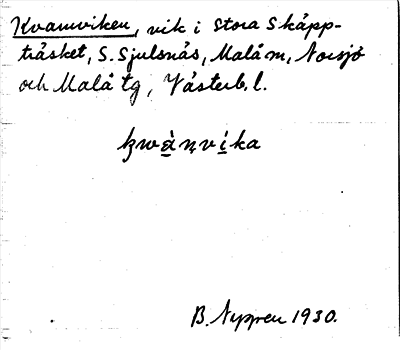 Kvarnviken, vik i Stora Skäpp-
träsket, S. Sjulsnäs, Malå m, Norsjö
och Malå tg, Västerb. l.
kwà̱ṇví̱ka
B. Nyppeu 1930.